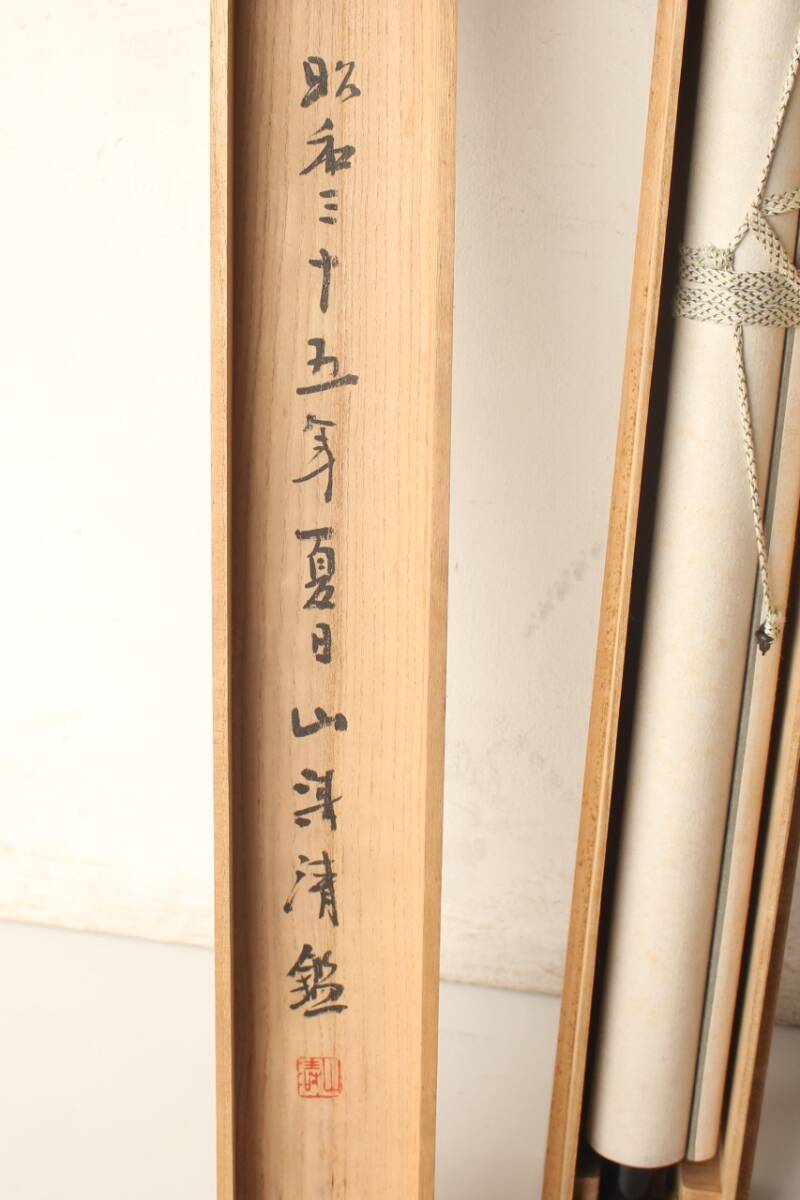 昭和三十五年夏日 山澤清鑑